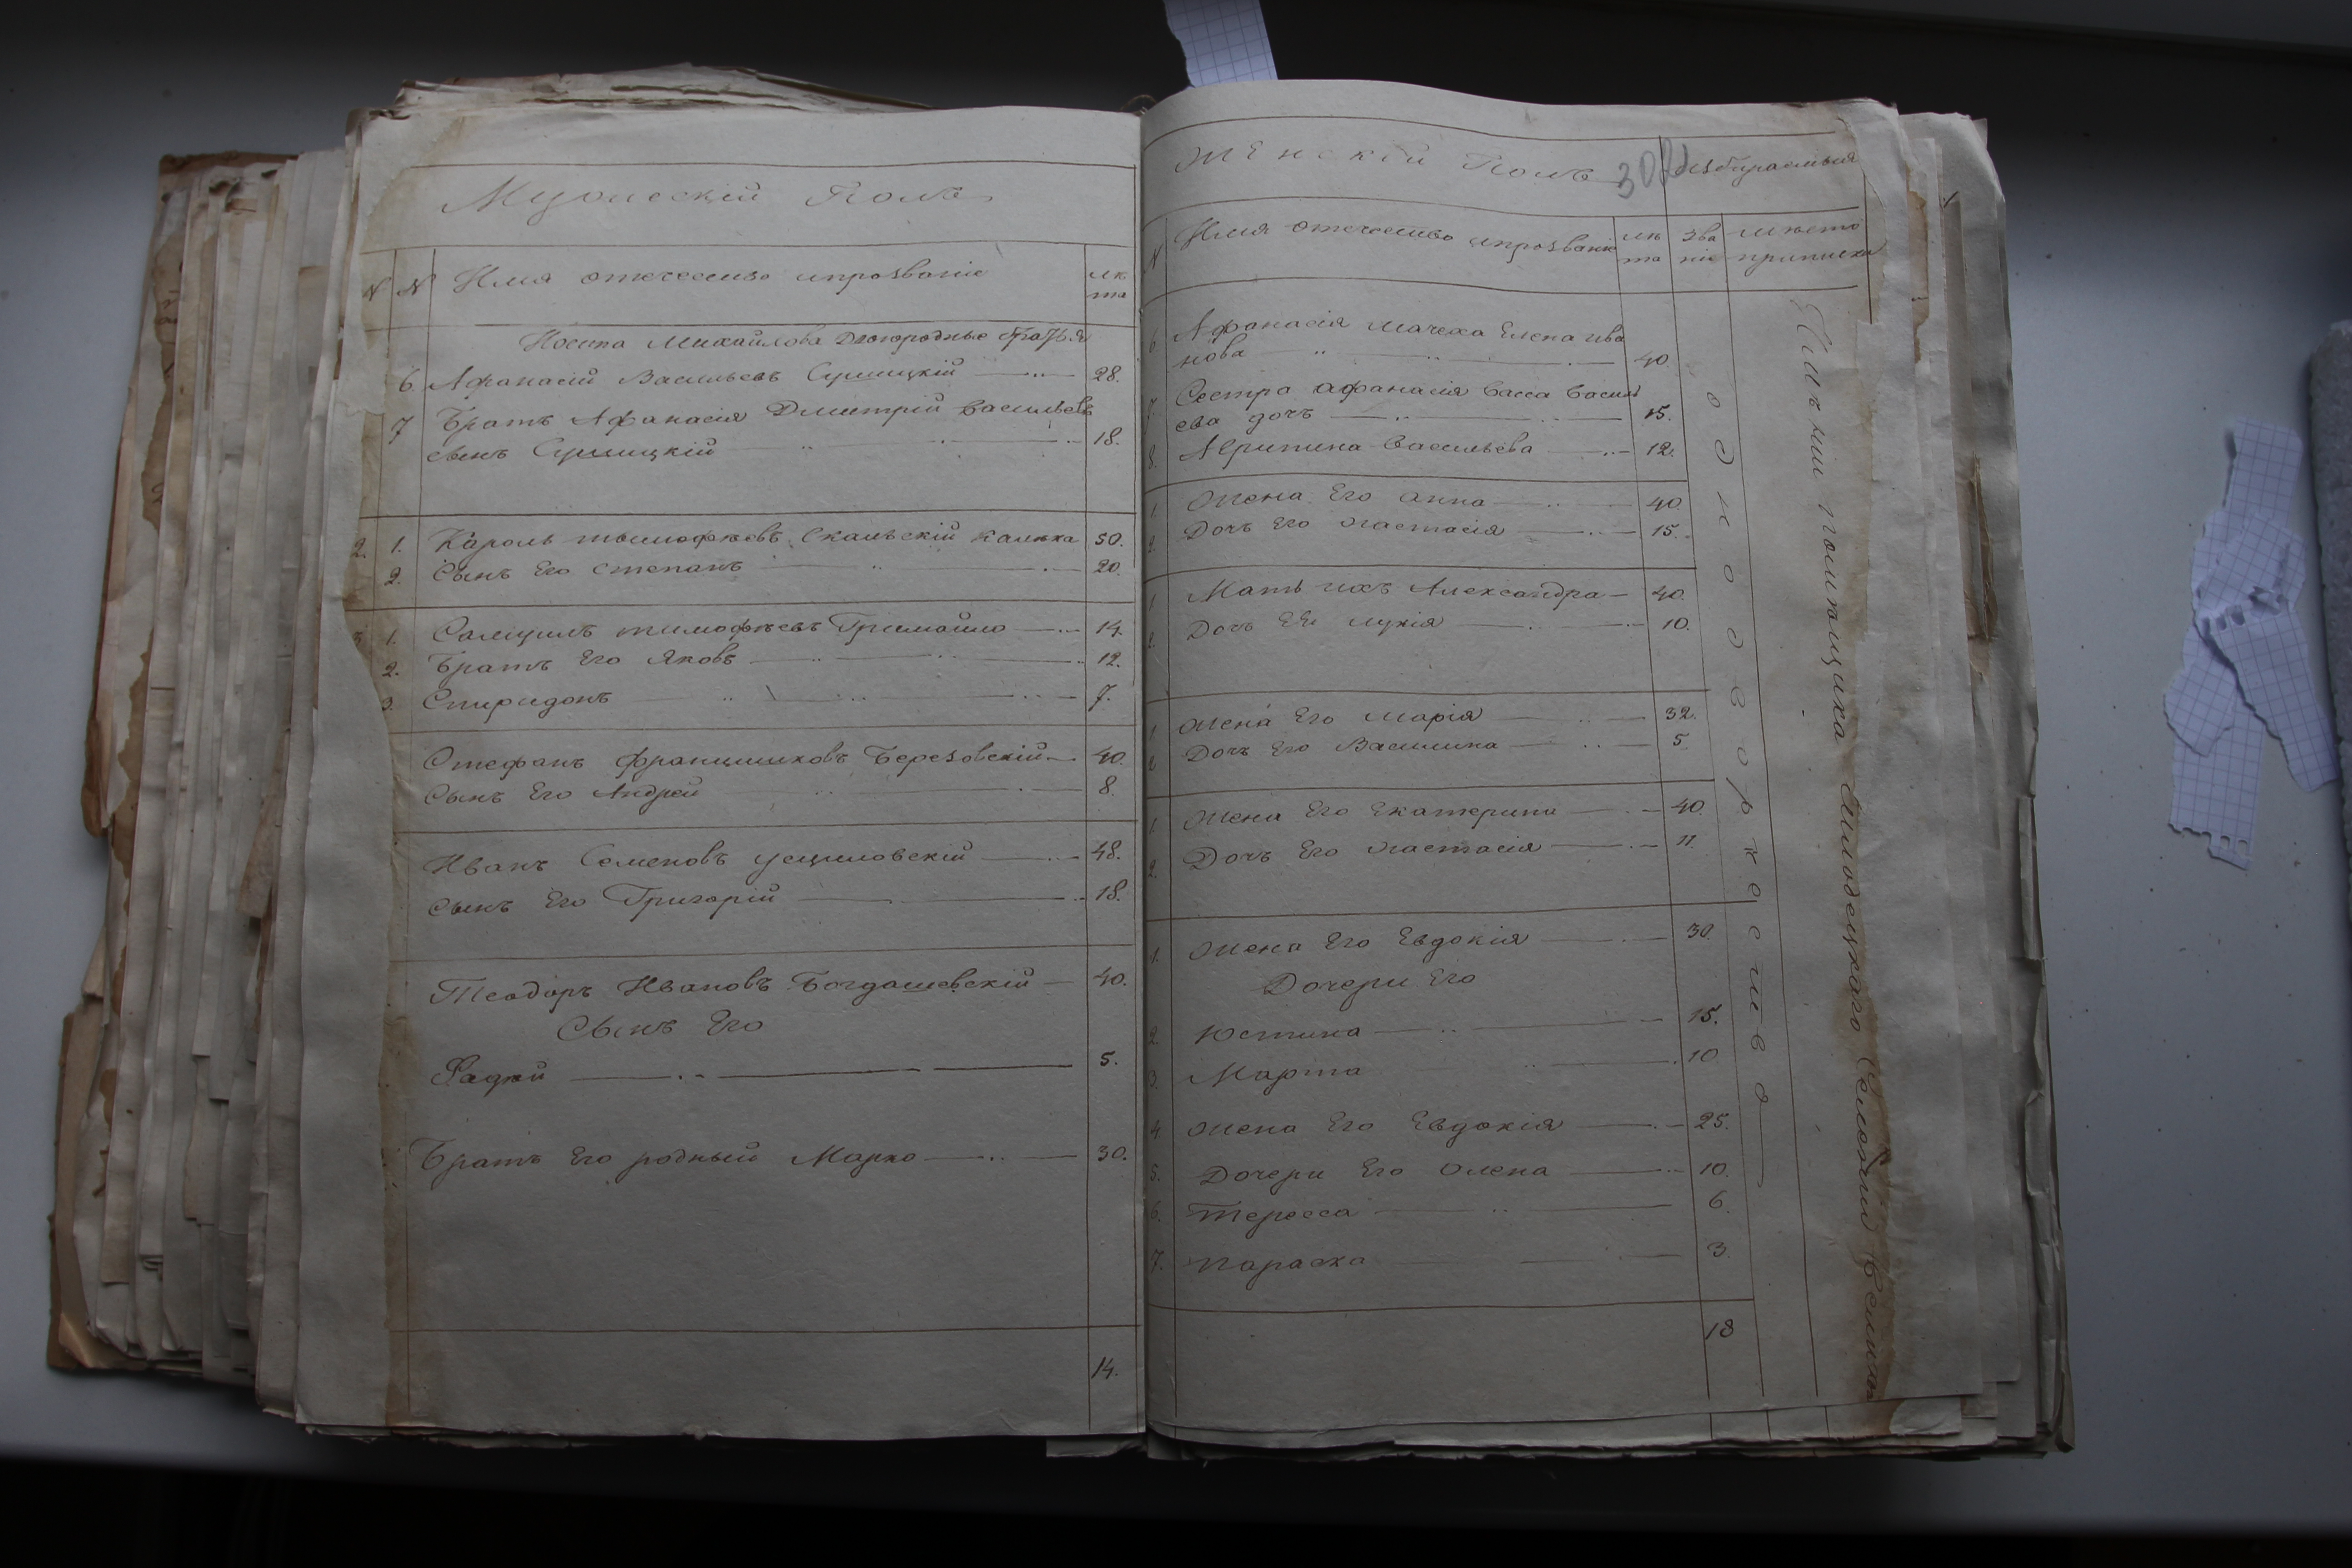 Мужескій Полъ
N N Имя отечество ипрозваніе лѣ
та
Иосипа Михайлова Двоюродные братья
6. Афанасій Васильевъ Сушицкій 28.
7 Братъ Афанасія Дмитрій Васильевъ
сынъ Сушицкій 18.
2. 1. Кароль тимофѣевъ Скальскій калѣка 50.
2. Сынъ Его степанъ 20.
3. 1. Самуилъ тимофѣевъ Громайло 14.
2. Братъ Его Яковъ 12.
3. Спиридонъ 7.
Стефанъ францишковъ Березовскій 40.
Сынъ Его Андрей 8.
Иванъ Семеновъ 48.
Сынъ Его Григорій 18.
Теодоръ Ивановъ Богдашевскій 40.
Сынъ Его
Фадѣй 5.
Братъ Его родный Марко 30.
14.
Женскій Полъ избираемыя
N Имя отечество ипрозваніе лѣ зва мѣсто
та ніе приписки
6 Афанасія мачеха Елена ива
нова 40.
7. Сестра афанасія Васса Васил
ева дочъ 15.
8. Агрипина Васильева 12.
1. Жена Его анна 40
2. Дочъ Его Настасія 15.
1 Мать ихъ Александра 40.
2. Дочъ Её лукія 10.
1. Жена Его Марія 32.
2 Дочъ Его Василина 5
1. Жена Его Екатерина 40.
2. Дочъ Его Настасія 11.
1. Жена Его Евдокія 30.
Дочери Его
2. Юстина 15.
3. Марта 10
4. Жена Его Евдокія 25.
5. Дочери Его Олена 10.
6. Тересса 6.
7. Параска 3
18
однодворческое
Имѣнии помѣщика Селеній